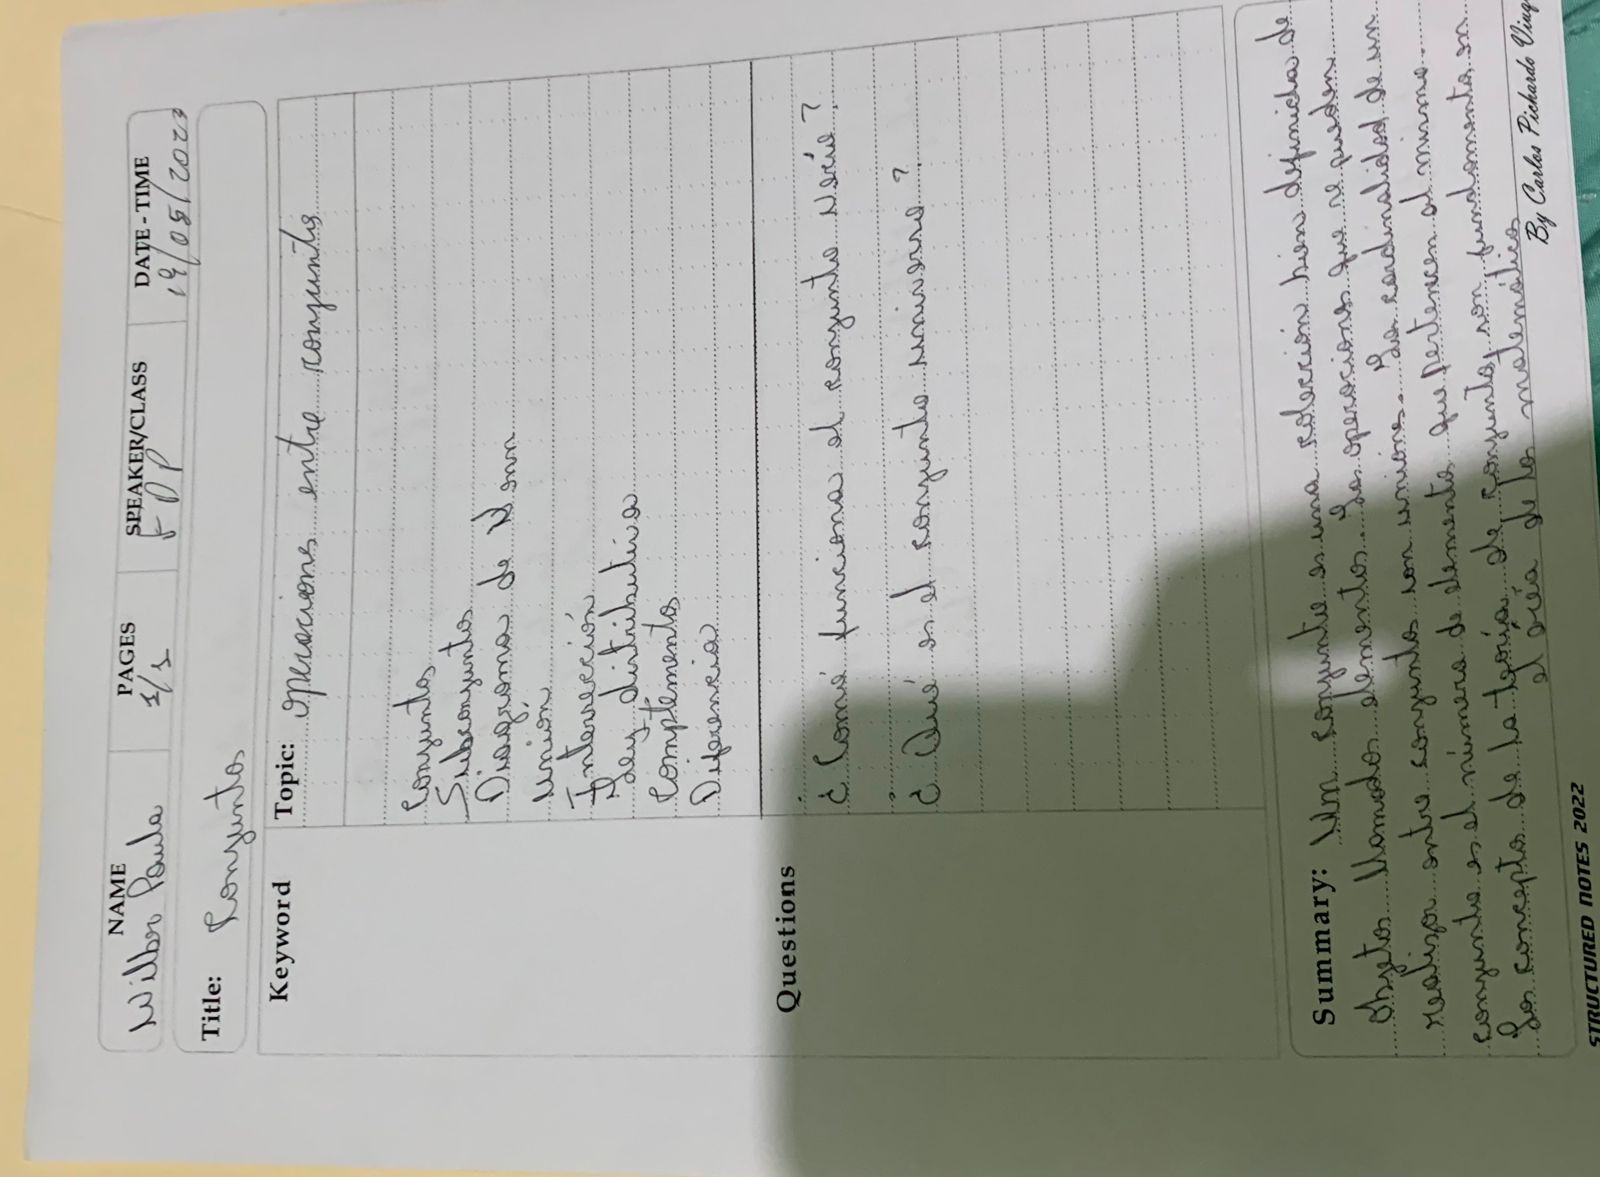 NAME
PAGES
SPEAKER/CLASS
DATE - TIME
Wilber Paula
1/1
FDP
19/05/2023
Title: Conjuntos
Keyword
Topic: operaciones entre conjuntos
Conjuntos
Subconjuntos
Diagrama de Venn
Unión
Intersección
Ley distributiva
Complementos
Diferencia
Questions
¿ Como funciona el conjunto Vacío ?
¿ Qué es el conjunto universo ?
Summary: Un conjunto es una colección bien definida de
objetos llamados elementos. Las operaciones que se pueden
realizar entre conjuntos son uniones. La cardinalidad de un
conjunto es el número de elementos que pertenecen al mismo.
Los conceptos de la teoría de conjuntos son fundamentos en
el área de las matemáticas
By Carlos Pichardo Viuq
STRUCTURED NOTES 2022